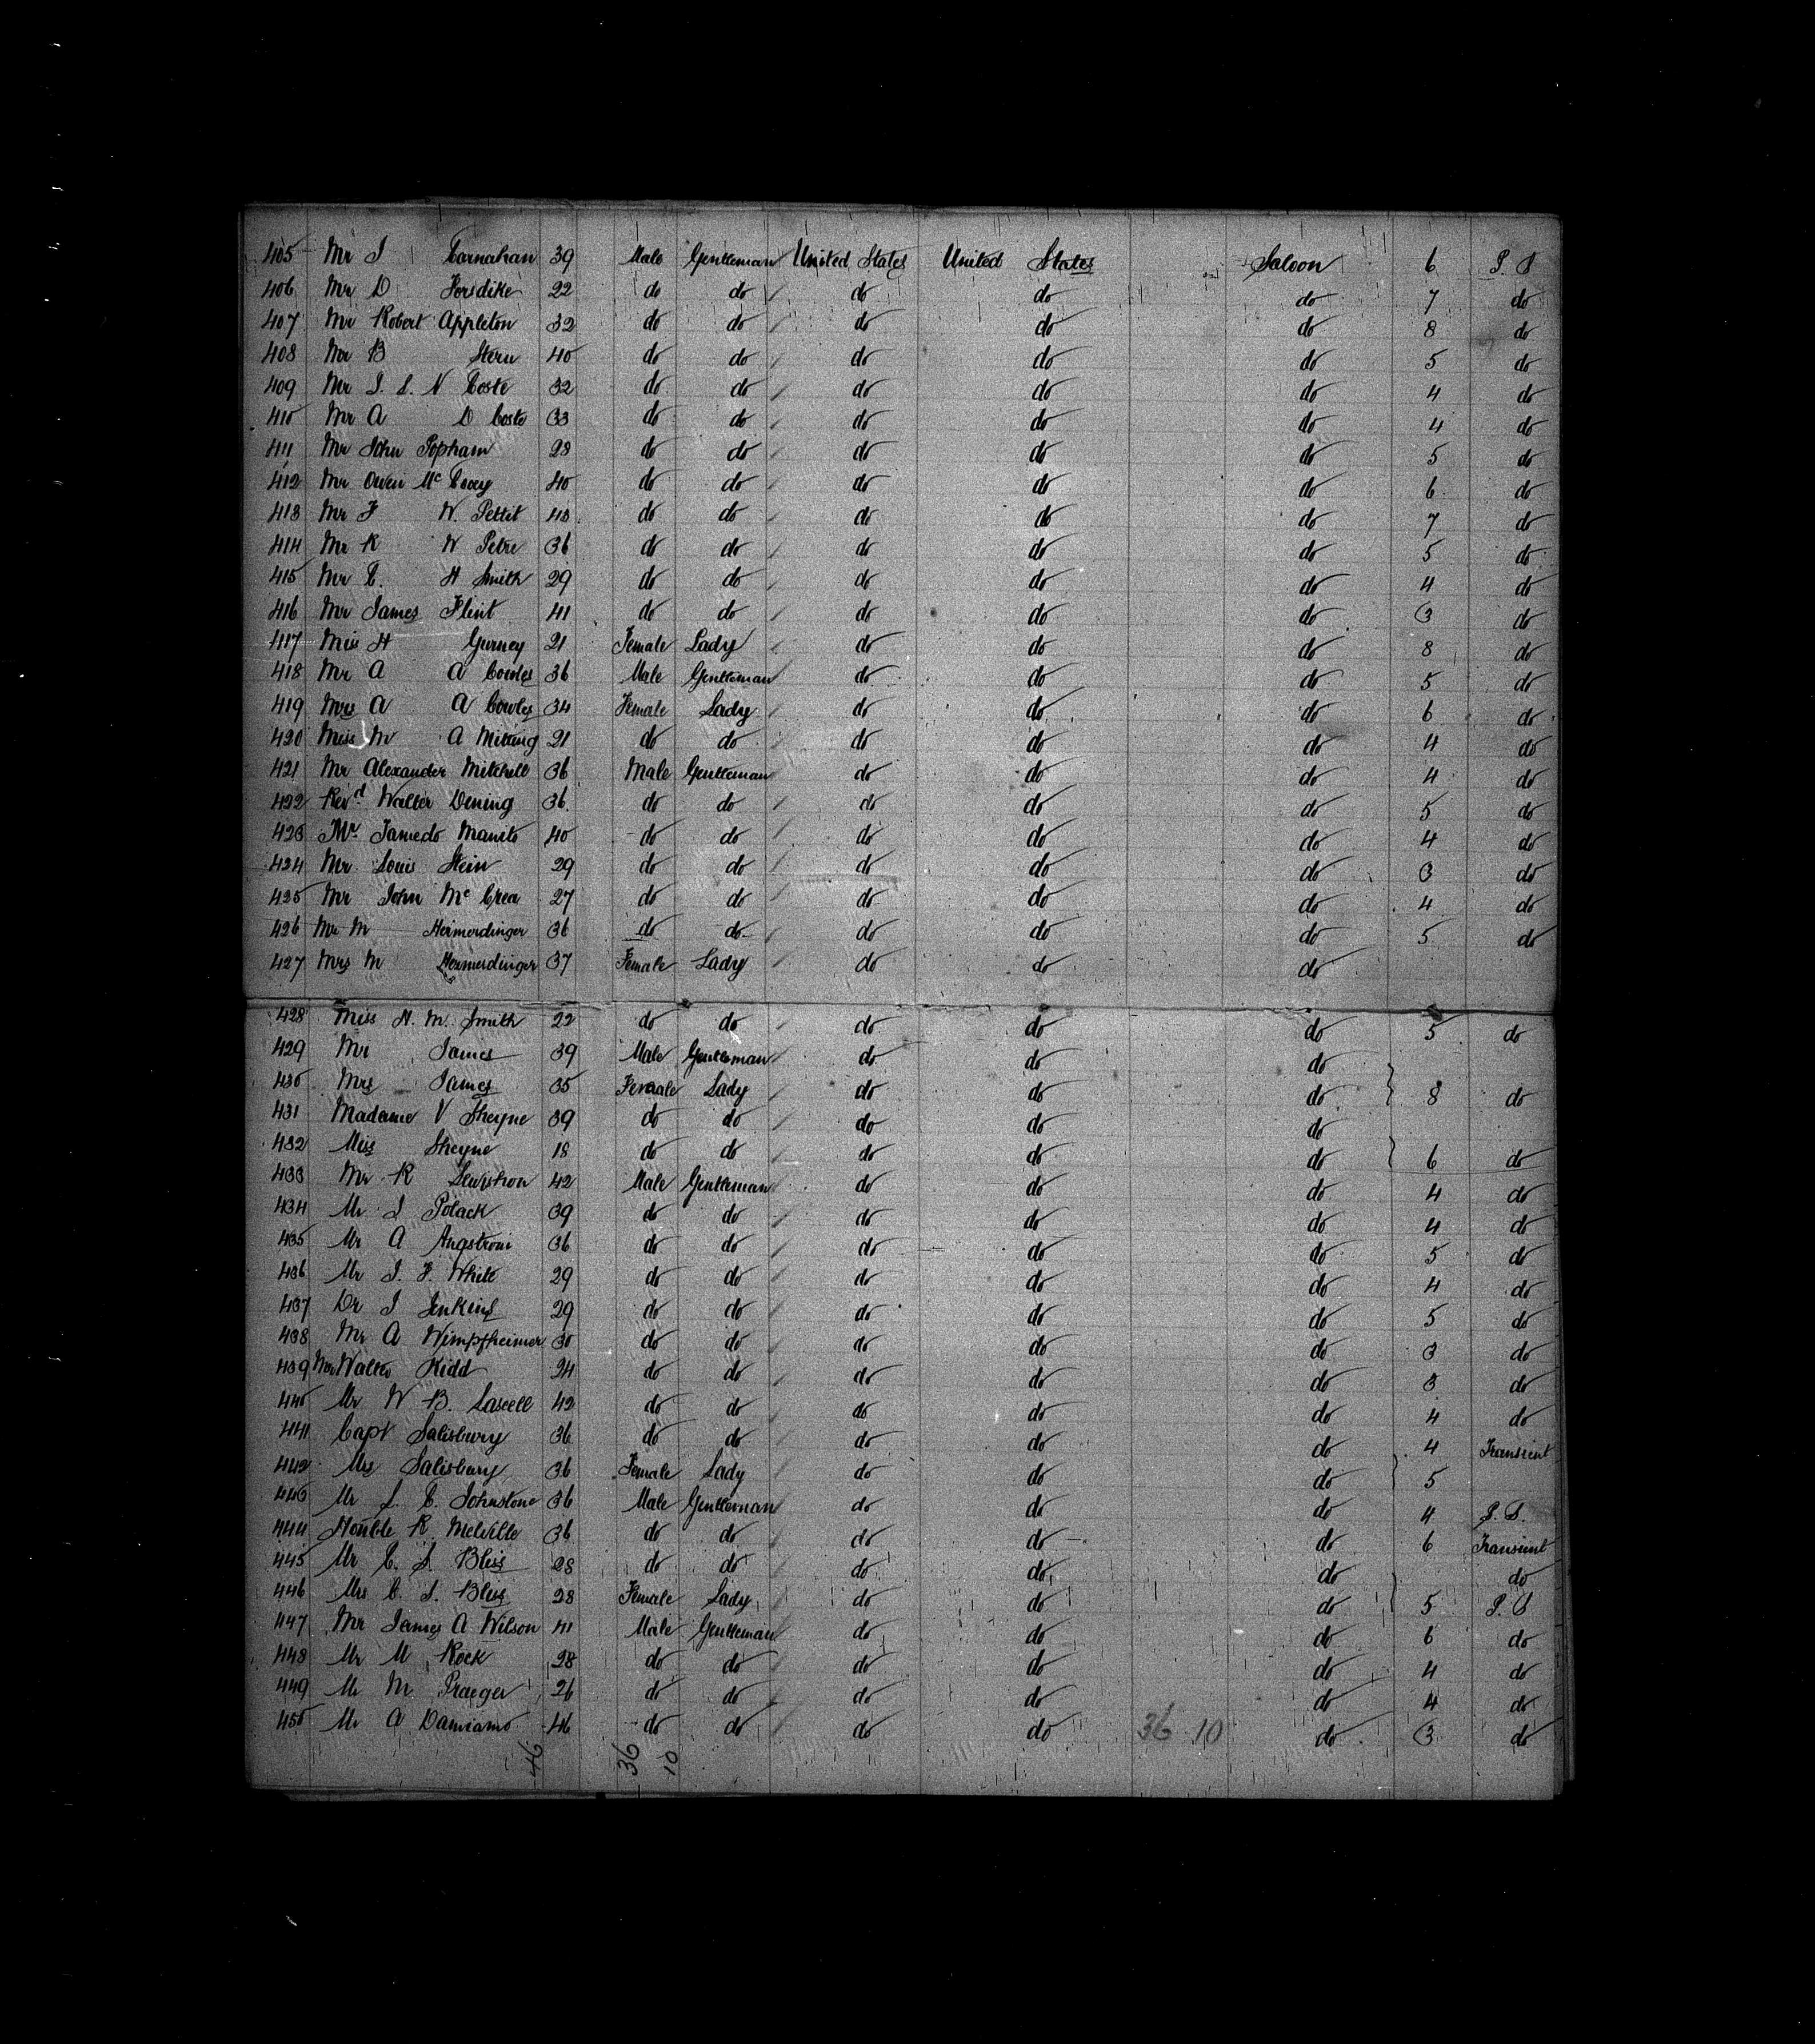 405 Mr J Carnahan 39 Male Gentleman United States United States Saloon 6 P. S
406 Mr D Forsdike 22 do do do do do 7 do
407 Mr Robert Appleton 32 do do do do do 8 do
408 Mr B Stern 40 do do do do do 5 do
409 Mr J. S. N Coste 32 do do do do do 4 do
410 Mr A D Coste 33 do do do do do 4 do
411 Mr John Popham 28 do do do do do 5 do
412 Mr Owen Mc 40 do do do do do 6 do
413 Mr F W. Pettit do do do do do 7 do
414 Mr R W Petre 36 do do do do do 5 do
415 Mr C. H Smith 29 do do do do do 4 do
416 Mr James Flint 41 do do do do do 3 do
417 Miss H Gurney 21 Female Lady do do do 8 do
418 Mr A A Cowles 36 Male Gentleman do do do 5 do
419 Mrs A A Cowles 34 Female Lady do do do 6 do
420 Miss M A 21 do do do do do 4 do
421 Mr Alexander Mitchell 36 Male Gentleman do do do 4 do
422 Revd Walter Dening 36. do do do do do 5 do
423 Mr Manito 40 do do do do do 4 do
424 Mr Louis Stein 29 do do do do do 3 do
425 Mr John Mc Crea 27 do do do do do 4 do
426 Mr M Heimerdinger 36 do do do do do 5 do
427 Mrs M Heimerdinger 37 Female Lady do do do
428 Miss H. M. Smith 22 do do do do do 5 do
429 Mr James 39 Male Gentleman do do do
430 Mrs James 35 Female Lady do do do 8 do
431 Madame V Sheyne 39 do do do do do
432 Miss Sheyne 18 do do do do do 6 do
433 Mr R 42 Male Gentleman do do do 4 do
434 Mr J Polack 39 do do do do do 4 do
435 Mr A Angstrom 36 do do do do do 5 do
436 Mr J. F. White 29 do do do do do 4 do
437 Dr J Jenkins 29 do do do do do 5 do
438 Mr A Wimpfheimer 30 do do do do do 3 do
439 Mr Walter Kidd 24 do do do do do 3 do
440 Mr W B. Lascell 42 do do do do do 4 do
441 Capt Salisbury 36 do do do do do 4 Transient
442 Mrs Salisbury 36 Female Lady do do do 5
443 Mr S. C. Johnstone 36 Male Gentleman do do do 4 P. S.
444 Honble R. Melville 36 do do do do do 6 Transient
445 Mr C. J. Bliss 28 do do do do do do
446 Mrs C. J. Bliss 28 Female Lady do do do 5 P. S
447 Mr James A Wilson 41 Male Gentleman do do do 6 do
448 Mr M Rock 28 do do do do do 4 do
449 Mr M Praeger 26 do do do do do 4 do
450 Mr A Damiano 46 do do do do 36 10 do 3 do
46 36 10